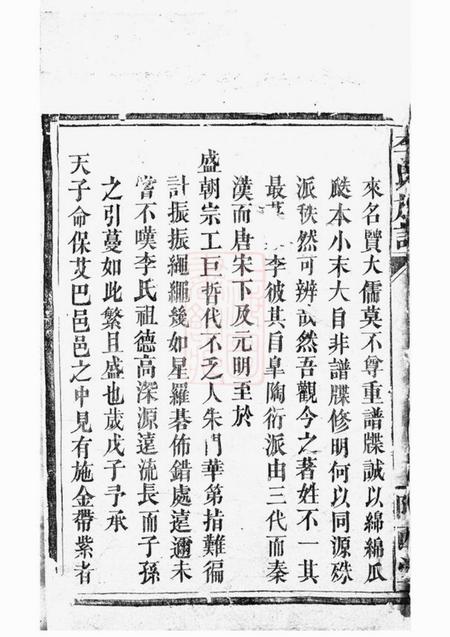 來名賢大儒莫不尊重譜牒誠以綿綿瓜
瓞本小末大自非譜牒修明何以同源
派秩然可辨哉然吾觀今之著姓不一其
最 李彼其自皋陶衍派由三代而秦
漢而唐宋下及元明至於
盛朝宗工巨哲代不乏人朱門華第指難徧
計振振繩繩幾如星羅碁佈錯處遠邇未
嘗不嘆李氏祖德高深源遠流長而子孫
之引蔓如此繁且盛也歲戊子予承
天子命保艾巴邑邑之中見有施金帶紫者